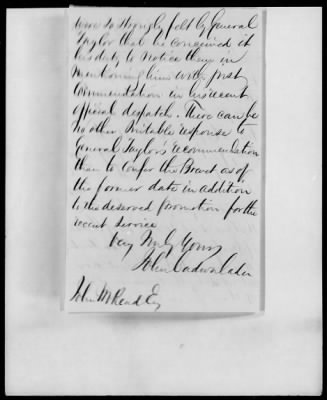 were so strongly felt by General
Taylor that he conceived it
his duty to notice them in
mentioning him with just
commendation in his recent
official despatch. There can be
no other suitable response to
General Taylor's recommendation
than to confer the Brevet as of
the former date in addition
to the deserved promotion for the
recent service
Very Truly Yours
John Cadwalader
John M Read Esq